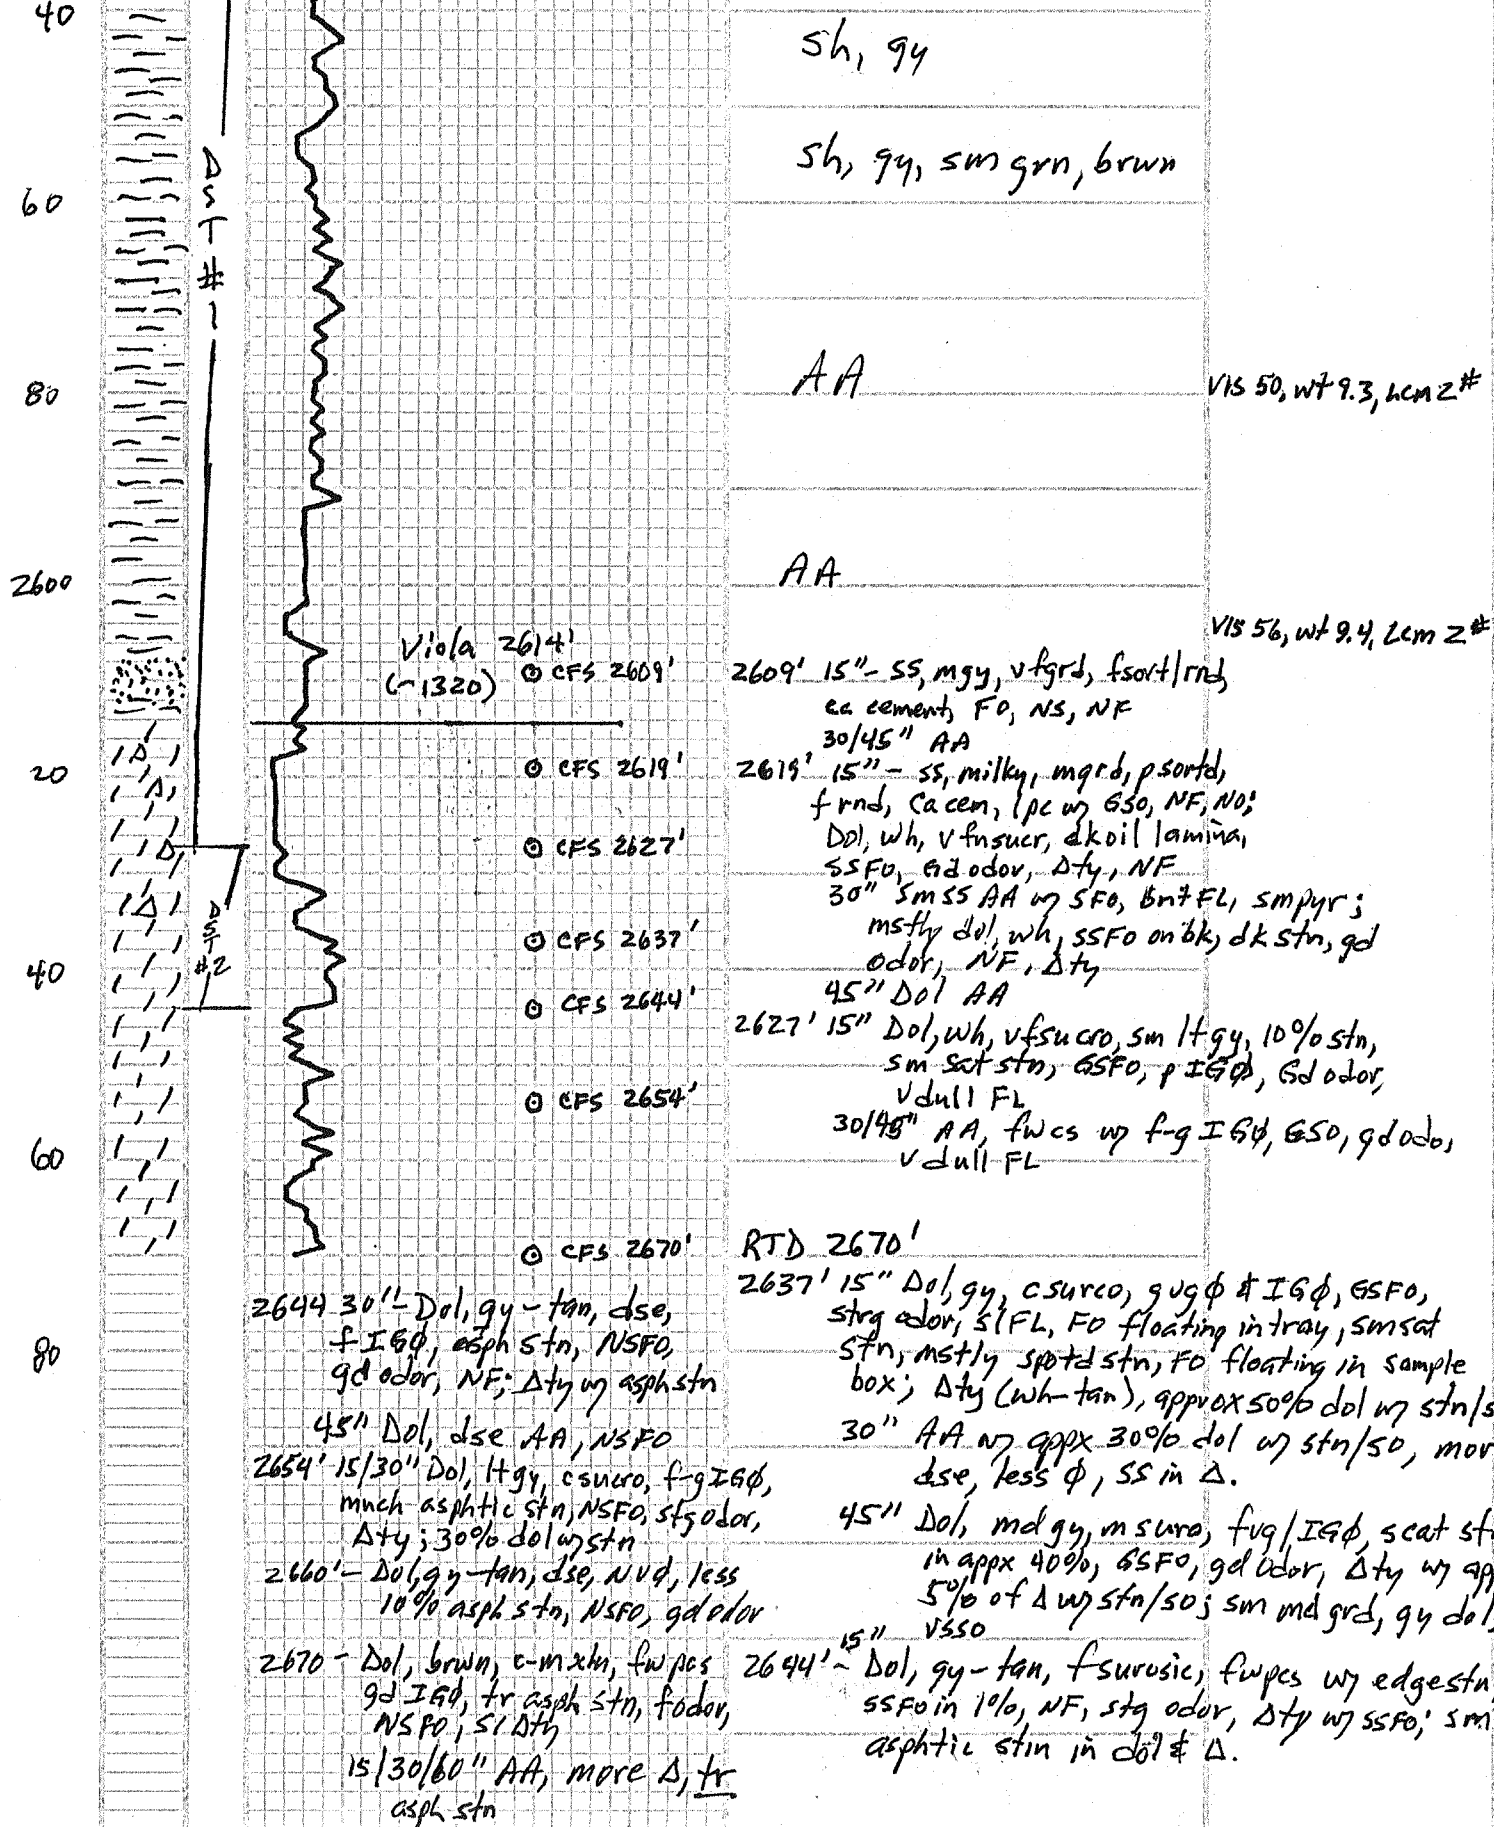 40
sh, gy
sh, gy, sm grn, brwn
60
DST #1
AA
80
VIS 50, wt 9.3, Lcm 2#
AA
2600
VIS 56, wt 9.4, Lcm 2#
Viola 2614'
(-1320)
⊙ CFS 2609'
2609' 15"- SS, mgy, vfgrd, fsort/rnd,
ca cement, FO, NS, NF
30/45" AA
20
⊙ CFS 2619'
2619' 15"- SS, milky, mgrd, psortd,
frnd, Ca cem, 1pc w/ GSO, NF, NO;
Dol, wh, vfnsucr, dkoil lamina,
SSFO, Gd odor, Δty, NF
30" Sm SS AA w/ SFO, BntFL, smpyr;
mstly dol, wh, SSFO on bk, dk stn, gd
odor, NF, Δty
45" Dol AA
⊙ CFS 2627'
DST #2
⊙ CFS 2637'
40
⊙ CFS 2644'
2627' 15" Dol, wh, vfsucro, sm ltgy, 10% stn,
sm sat stn, GSFO, p IGØ, Gd odor,
v dull FL
30/45" AA, fwcs w/ f-g IGØ, GSO, gd odo,
v dull FL
⊙ CFS 2654'
60
⊙ CFS 2670'
RTD 2670'
2637' 15" Dol, gy, csurco, gvgØ & IGØ, GSFO,
strg odor, slFL, FO floating in tray, smsat
stn, mstly spotd stn, FO floating in sample
box; Δty (wh-tan), approx 50% dol w/ stn/s
30" AA w/ appx 30% dol w/ stn/so, mor
dse, less Ø, SS in Δ.
45" Dol, mdgy, m suro, fvg/IGØ, scat st
in appx 40%, GSFO, gd odor, Δty w/ ap
5% of Δ w/ stn/so; sm md grd, gy dol,
VSSO
2644'- 15" Dol, gy-tan, fsurosic, fwpcs w/ edgestn,
SSFO in 1%, NF, stg odor, Δty w/ SSFO; sm
asphtic stin in dol & Δ.
80
2644 30"- Dol, gy-tan, dse,
f IGØ, asph stn, NSFO,
gd odor, NF; Δty w/ asph stn
45" Dol, dse AA, NSFO
2654' 15/30" Dol, ltgy, csucro, f-gIGØ,
much asphtic stn, NSFO, stgodor,
Δty; 30% dol w/ stn
2660'- Dol, gy-tan, dse, NVØ, less
10% asph stn, NSFO, gd odor
2670 - Dol, brwn, c-mxln, fwpcs
gd IGØ, tr asph stn, fodor,
NSFO, Sl Δty
15/30/60" AA, more Δ, tr
asph stn